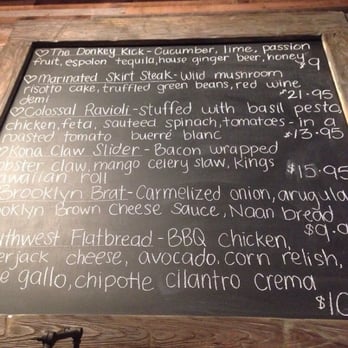 ♡The Donkey Kick-Cucumber, lime, passion
fruit, espolon tequila, house ginger beer, honey
$9
♡Marinated Skirt Steak-Wild mushroom
risotto cake, truffled green beans, red wine
demi $21.95
♡Colossal Ravioli-stuffed with basil pesto,
chicken, feta, sauteed spinach, tomatoes-in a
roasted tomato buerré blanc $13.95
♡Kona Claw Slider-Bacon wrapped
lobster claw, mango celery slaw, kings
hawaiian roll $15.95
Brooklyn Brat-Carmelized onion, arugula
ooklyn Brown Cheese Sauce, Naan bread
$9.9
uthwest Flatbread-BBQ Chicken,
erjack cheese, avocado, corn relish,
gallo, chipotle cilantro crema
$10